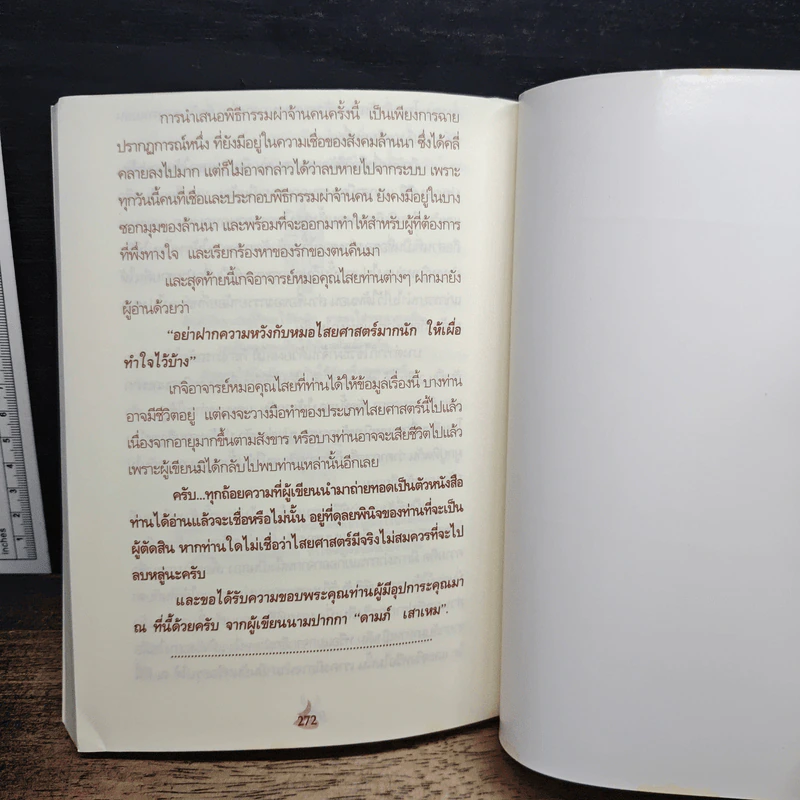 การนำเสนอพิธีกรรมผ่าจ้านคนครั้งนี้ เป็นเพียงการฉาย
ปรากฏการณ์หนึ่ง ที่ยังมีอยู่ในความเชื่อของสังคมล้านนา ซึ่งได้คลี่
คลายลงไปมาก แต่ก็ไม่อาจกล่าวได้ว่าลบหายไปจากระบบ เพราะ
ทุกวันนี้คนที่เชื่อและประกอบพิธีกรรมผ่าจ้านคน ยังคงมีอยู่ในบาง
ซอกมุมของล้านนา และพร้อมที่จะออกมาทำให้สำหรับผู้ที่ต้องการ
ที่พึ่งทางใจ และเรียกร้องหาของรักของตนคืนมา
และสุดท้ายนี้เกจิอาจารย์หมอคุณไสยท่านต่างๆ ฝากมายัง
ผู้อ่านด้วยว่า
“อย่าฝากความหวังกับหมอไสยศาสตร์มากนัก ให้เผื่อ
ทำใจไว้บ้าง”
เกจิอาจารย์หมอคุณไสยที่ท่านได้ให้ข้อมูลเรื่องนี้ บางท่าน
อาจมีชีวิตอยู่ แต่คงจะวางมือทำของประเภทไสยศาสตร์นี้ไปแล้ว
เนื่องจากอายุมากขึ้นตามสังขาร หรือบางท่านอาจจะเสียชีวิตไปแล้ว
เพราะผู้เขียนมิได้กลับไปพบท่านเหล่านั้นอีกเลย
ครับ...ทุกถ้อยความที่ผู้เขียนนำมาถ่ายทอดเป็นตัวหนังสือ
ท่านได้อ่านแล้วจะเชื่อหรือไม่นั้น อยู่ที่ดุลยพินิจของท่านที่จะเป็น
ผู้ตัดสิน หากท่านใดไม่เชื่อว่าไสยศาสตร์มีจริงไม่สมควรที่จะไป
ลบหลู่นะครับ
และขอได้รับความขอบพระคุณท่านผู้มีอุปการะคุณมา
ณ ที่นี้ด้วยครับ จากผู้เขียนนามปากกา “ดามภ์ เสาเหม”.
272
inches